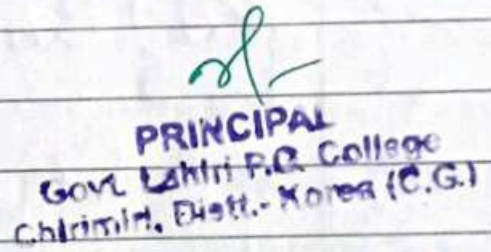 PRINCIPAL
Govt. Lahiri P.G. College
Chirimiri, Distt.- Korea (C.G.)